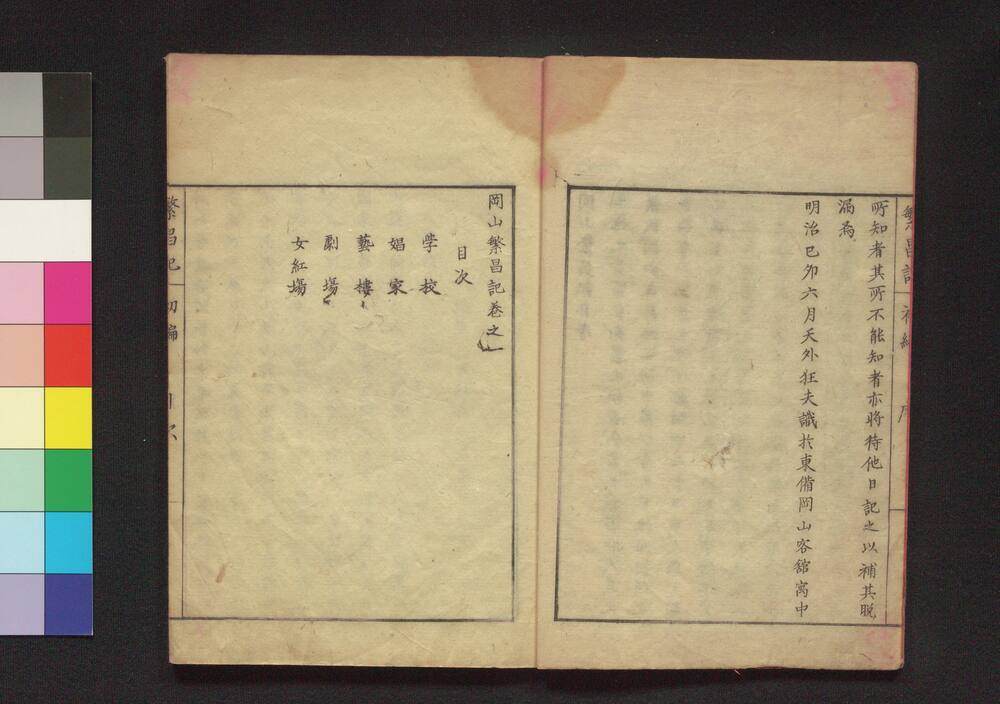 所知者其所不能知者亦將待他日記之以補其脱
漏為
明治己卯六月天外狂夫識於東備岡山客舘寓中
岡山繁昌記巻之一
目次
學校
娼家
藝樓
劇塲
女紅塲
繁昌記 初編 目次